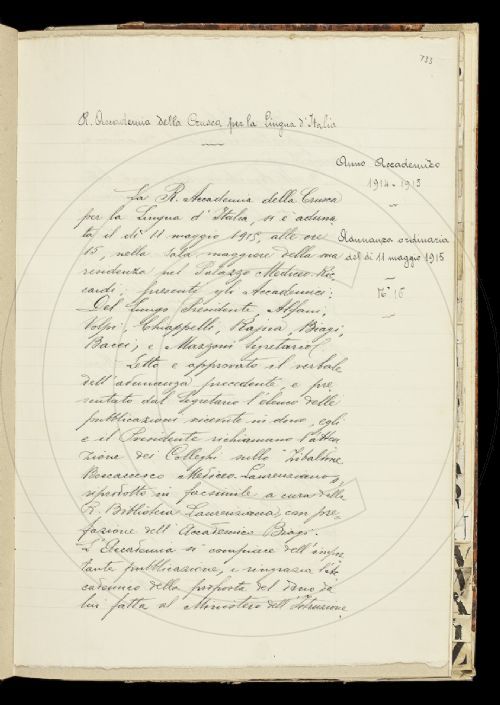 133
R. Accademia della Crusca per la Lingua d'Italia
Anno Accademico
1914-1915
Adunanza ordinaria
del dì 11 maggio 1915
N.° 16
La R. Accademia della Crusca
per la Lingua d'Italia, si è aduna-
ta il dì 11 maggio 1915, alle ore
15, nella sala maggiore della sua
residenza nel Palazzo Mediceo-Ric-
cardi: presenti gli Accademici:
Del Lungo Presidente, Alfani,
Volpi, Chiappelli, Rajna, Biagi,
Bacci, e Mazzoni Segretario.
Letto e approvato il verbale
dell'adunanza precedente, e pre-
sentato dal Segretario l'elenco delle
pubblicazioni ricevute in dono, egli
e il Presidente richiamano l'atten-
zione dei Colleghi sullo Zibaldone
Boccaccesco Mediceo-Laurenziano,
riprodotto in facsimile a cura della
R. Biblioteca Laurenziana, con pre-
fazione dell'Accademico Biagi.
L'Accademia si compiace dell'impor-
tante pubblicazione, e ringrazia l'Ac-
cademico della proposta del dono da
lui fatta al Ministero dell'Istruzione